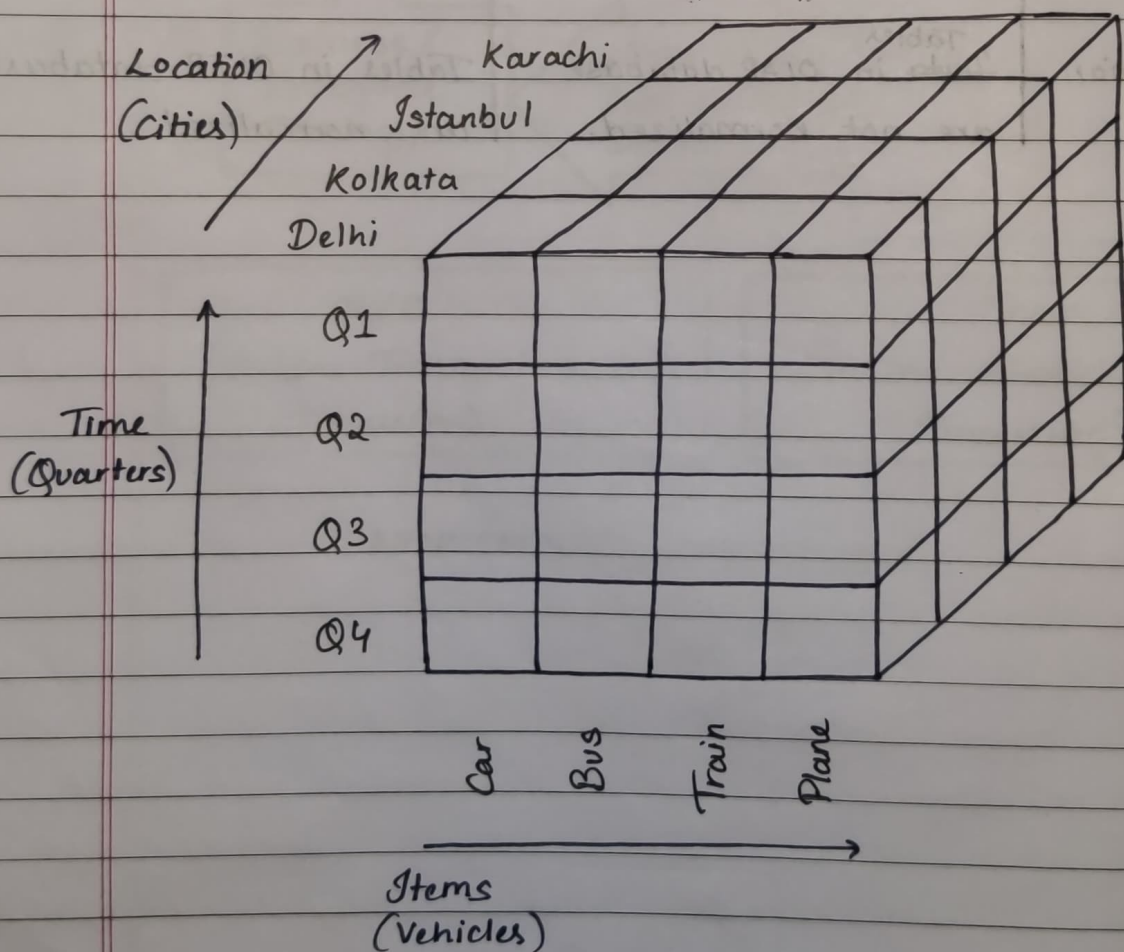 Location
(Cities)
Karachi
Istanbul
Kolkata
Delhi
Time
(Quarters)
Q1
Q2
Q3
Q4
Car
Bus
Train
Plane
Items
(Vehicles)